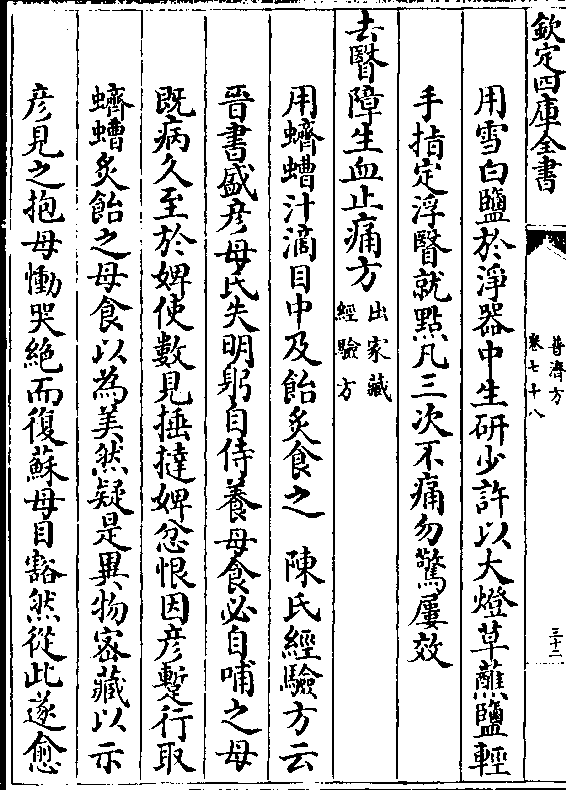 欽定四庫全書
普濟方
卷七十八
三十二
用雪白鹽於淨器中生研少許以大燈草蘸鹽輕
手指定浮瞖就點凡三次不痛勿驚屢效
去瞖障生血止痛方
出家藏
經驗方
用蠐螬汁滴目中及飴炙食之　陳氏經驗方云
晉書盛彦母氏失明躬自侍養母食必自哺之母
既病久至於婢使數見捶撻婢忿恨因彦蹔行取
蠐螬炙飴之母食以為美然疑是異物密藏以示
彦見之抱母慟哭絶而復蘇母目豁然從此遂愈